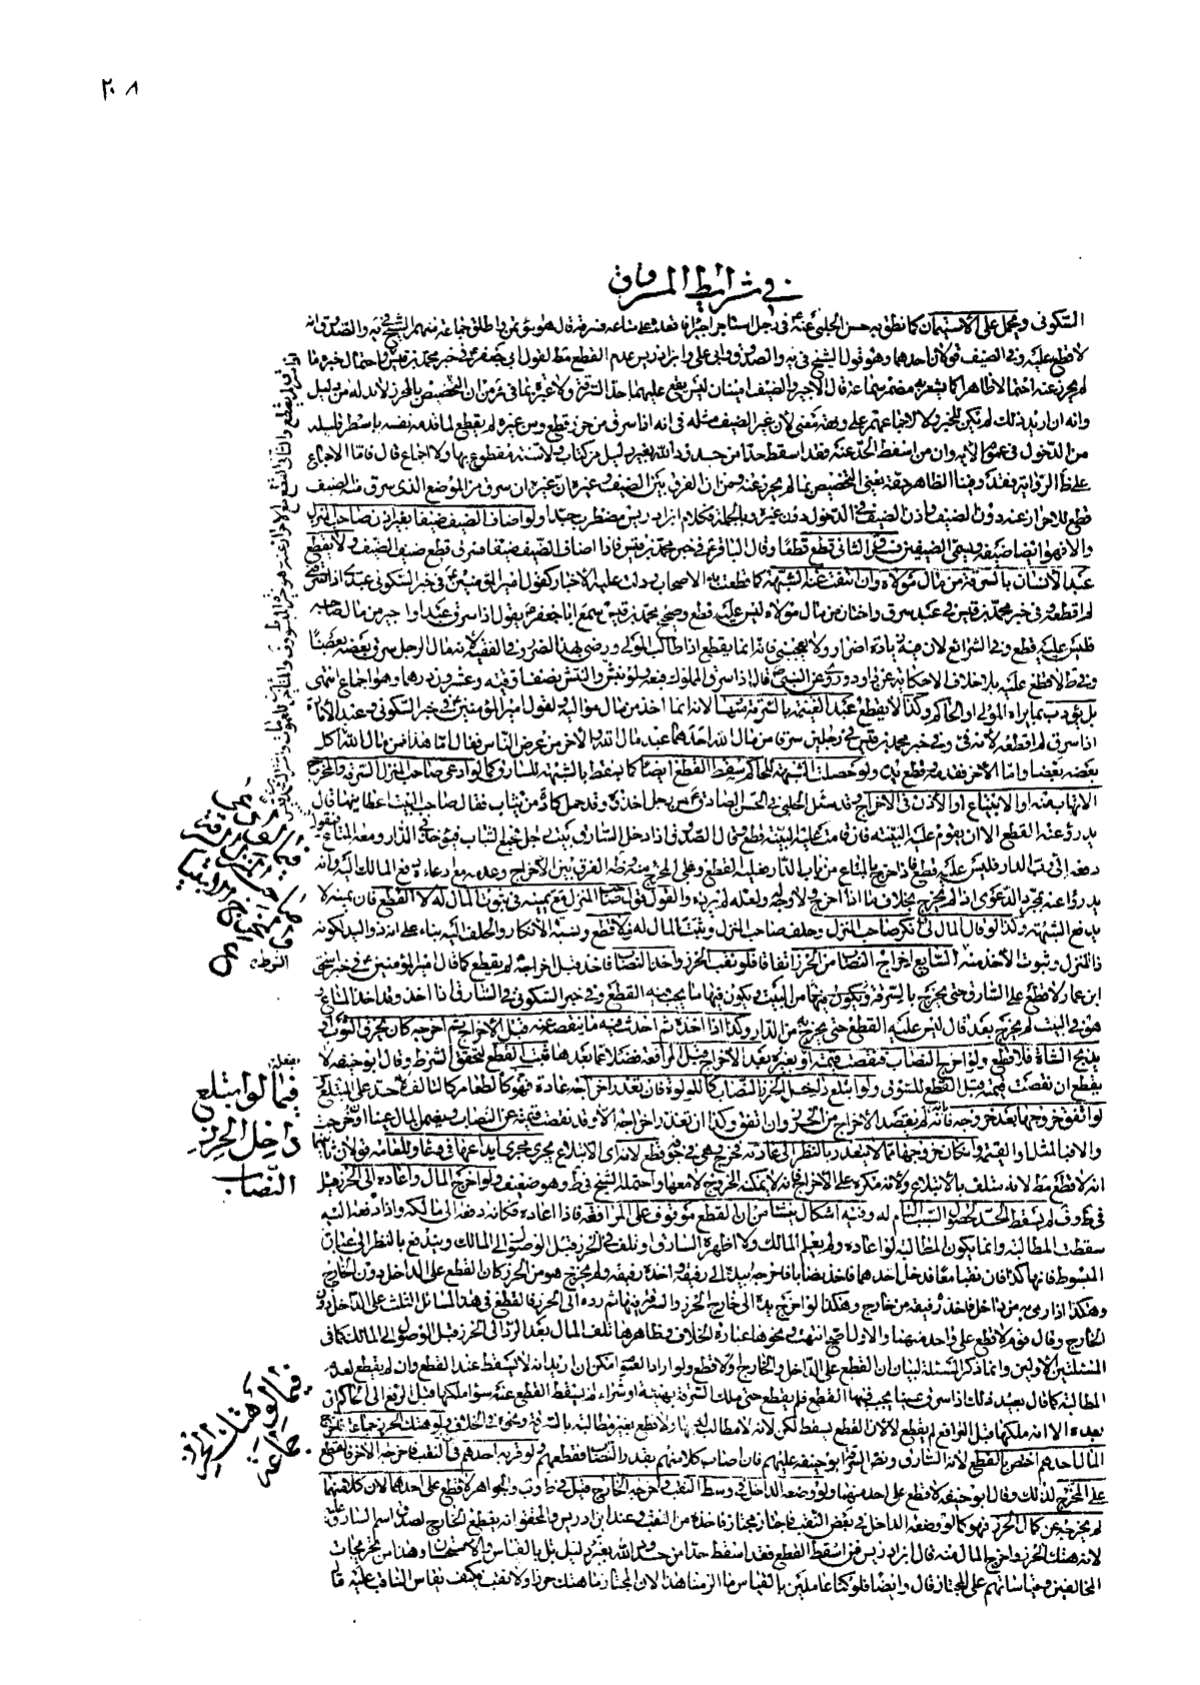 ٢٠٨
في شرائط المسروق
السكوني وحمل على الاستيمان كما نطق به حسن الحلبي عنه في رجل استاجر اجيرا فاقعده على متاعه فسرقه قال هو مؤتمن واطلق جماعة منهم الشيخ في يه والصدوق انه
لا قطع عليه وفي الضيف قولان احدهما وهو قول الشيخ في يه والصدوق وابي علي وابن ادريس عدم القطع مط لقول ابي جعفر في خبر محمد بن قيس واحتمال خبره ما
لم يحرز عنه احتمالا ظاهرا كما يشعر به مضمر سماعة قال الاجير والضيف امينان ليس يقع عليهما حد السرقة ولا غيره بما في من ان التخصيص بالحرز لابد له من دليل
وانه ان اريد ذلك لم يكن للخبر ولا لاجماعهم عليه معنى لان غير الضيف مثله في انه اذا سرق من حرز قطع ومن غيره لم يقطع
من الدخول في عموم الاية وان من اسقط الحد عنه فقد اسقط حدا من حدود الله بغير دليل من كتاب ولا سنة مقطوع بها ولا اجماع قال فاما الاجماع
على ظاهر الرواية فقد وفينا الظاهر حقه يعني التخصيص بما لم يحرز عنه ومن ان الفرق بين الضيف وغيره ان غيره ان سرق من الموضع الذي سرق منه الضيف
قطع للاحراز عنه دون الضيف للاذن للضيف في الدخول دون غيره وبالجملة فكلام ابن ادريس مضطرب جدا ولو اضاف الضيف ضيفا بغير اذن صاحب المنزل
والا فهو ايضا ضيفه وبقي الضيفين فسرق الثاني قطع قطعا وقال الباقر في خبر محمد بن قيس فاذا اضاف الضيف ضيفا فسرق قطع ضيف الضيف ولا يقطع
عبد الانسان بالسرقة من مال مولاه وان انتفت عنه الشبهة كما قطعت به الاصحاب ودلت عليه الاخبار كقول امير المؤمنين في خبر السكوني عبدي اذا سرقني
لم اقطعه وفي خبر محمد بن قيس في عبد سرق واختان من مال مولاه ليس عليه قطع وصحيح محمد بن قيس سمع ابا جعفر يقول اذا سرق عبد او اجير من مال صاحبه
فليس عليه قطع وفي الشرائع لان فيه زيادة اضرار ولا يعجبني فانه انما يقطع اذا طالب المولى ورضي بهذا الضرر وفي الفقيه لانه مال الرجل سرق بعضه بعضا
وفي ط لا قطع عليه بلا خلاف الا حكاية عن داود وروي عن النبي قال اذا سرق المملوك فبعه ولو بنش والنش نصف اوقية وعشرون درهما وهو اجماع انتهى
بل يؤدب بما يراه المولى او الحاكم وكذا لا يقطع عبد الغنيمة بالسرقة منها لانه انما اخذ من مال مواليه ولقول امير المؤمنين في خبر السكوني وعبد الامارة
اذا سرق لم اقطعه لانه فيء وفي خبر محمد بن قيس في رجلين سرقا من مال الله احدهما عبد مال الله والاخر من عرض الناس فقال اما هذا فمن مال الله اكل
بعضه بعضا واما الاخر فقدمه وقطع يده ولو حصلت الشبهة للحاكم سقط القطع ايضا كما يسقط بالشبهة للسارق كما لو ادعى صاحب المنزل السرقة والمخرج
الاتهاب منه او الابتياع او الاذن في الاخراج وقد سئل الحلبي في الحسن الصادق عن رجل اخذوه وقد حمل كارة من ثياب فقال صاحب البيت اعطانيها قال
يدرؤ عنه القطع الا ان يقوم عليه البينة فان قامت عليه البينة قطع وقال الصدوق اذا دخل السارق بيت رجل فجمع الثياب فيؤخذ في الدار ومعه المتاع فيقول
دفعه الي رب الدار فليس عليه قطع فاذا خرج بالمتاع من باب الدار فعليه القطع او يجيء بالمخرج منه وظ الفرق بين الاخراج وعدمه مع دعاء دفع المالك اليه وانه
يدرؤ عنه بمجرد الدعوى اذا لم يخرج بخلاف ما اذا اخرج ولا وجه له ولعله لم يرده والقول قول صاحب المنزل مع يمينه في ثبوت المال له لا القطع فان يمينه لا
يدفع الشبهة وكذا لو قال المال لي فانكر صاحب المنزل وحلف صاحب المنزل ويثبت المال له ولا قطع ونسبة الانكار والحلف اليه بناء على انه ذو اليد لكونه
ذا المنزل وثبوت الاخذ منه السابع اخراج النصاب من الحرز اتفاقا فلو نقب الحرز واخذ النصاب فاخذ قبل اخراجه لم يقطع كما قال امير المؤمنين في خبر اسحق
ابن عمار لا قطع على السارق حتى يخرج بالسرقة ويكون فيها من البيت ويكون فيها ما يجب فيه القطع وفي خبر السكوني في السارق اذا اخذ وقد اخذ المتاع و
هو في البيت لم يخرج بعد قال ليس عليه القطع حتى يخرج به من الدار وكذا اذا اخذه ثم احدث فيه ما ينقصه عنه قبل الاخراج ثم اخرجه كان يخرق الثوب او
يذبح الشاة فلا قطع ولو اخرج النصاب فنقصت قيمته او بغيره بعد الاخراج قبل المرافعة فضلا عما بعدها ثبت القطع لتحقق الشرط وقال ابو حنيفة لا
يقطع ان نقصت قيمته قبل القطع للسوق ولو ابتلع داخل الحرز النصاب كاللؤلؤة فان تعذر اخراجه عادة فهو كالطعام كالتالف لا حد على المبتلع
لو اتفق خروجها بعد خروجه فانه لم يقصد الاخراج من الحرز وان اتفق وكذا ان تعذر اخراجه الا وقد نقصت قيمته عن النصاب ويضمن المال عينا او خرجت
والا فبالمثل او القيمة وان كان خروجها مما لا يتعذر بالنظر الى عادته فخرج وهي في جوفه قطع لانه اي الابتلاع يجري مجرى ايداعها في وعاء وللعامة قولان ثانيهما
انه لا قطع مط لانه متلف بالابتلاع ولانه مكره على الاخراج فانه لا يمكنه الخروج لا معها واحتمله الشيخ في ط وهو ضعيف ولو اخرج المال واعاده الى الحرز قيل
في ط وف لم يسقط الحد لحصول السبب التام له وفيه اشكال ينشأ من ان القطع موقوف على المرافعة فاذا اعاده فكانه دفعه الى مالكه واذا دفعه اليه
سقطت المطالبة وانما يكون المطالبة لو اعاده ولم يعلم المالك ولا اظهره السارق او تلف في الحرز قبل الوصول الى المالك ويندفع بالنظر الى عبارة
المبسوط فانها كذا فان نقبا معا فدخل احدهما فاخذ نصابا فاخرجه بيده الى رفيقه واخذه رفيقه ولم يخرج هو من الحرز كان القطع على الداخل دون الخارج
وهكذا اذا رمى به من داخل فاخذه رفيقه من خارج وهكذا لو اخرج يده الى خارج الحرز والسرقة فيها ثم رده الى الحرز فالقطع في هذه المسائل الثلث على الداخل دون
الخارج وقال قوم لا قطع على واحد منهما والاول اصح انتهت ونحوها عبارة الخلاف وظاهرها تلف المال بعد الرد الى الحرز قبل الوصول الى المالك كما في
المسئلتين الاوليين وانما ذكر المسئلة لبيان ان القطع على الداخل والخارج او لا قطع ولو اراد العموم امكن ان يريد انه لا يسقط عنه القطع وان لم يقطع لعدم
المطالبة كما قال بعيد ذلك اذا سرق عينا يجب فيها القطع فلم يقطع حتى ملك السرقة بهبة او شراء لم يسقط القطع عنه سواء ملكها قبل الرفع الى الحاكم او
بعده الا انه ملكها قبل الترافع لم يقطع لا لان القطع يسقط لكن لانه لا مطالب له بها ولا قطع بغير مطالبة بالسرقة ونحوه في الخلاف ولو هتك الحرز جماعة فاخرج
المال احدهم اختص بالقطع لانه السارق ونص الشرائع ابو حنيفة عليهم فان اصاب كلا منهم بقدر النصاب قطعهم ولو قربه احدهم في النقب فاخرجه الاخر فالقطع
على المخرج لذلك وقال ابو حنيفة لا قطع على احد منهما ولو وضعه الداخل في وسط النقب فاخرجه الخارج قيل في ط وب والجواهر لا قطع على احدهما لان كلا منهما
لم يخرجه عن كمال الحرز فهو كما لو وضعه الداخل في بعض النقب فاجتاز مجتاز فاخذه من النقب وعند ابن ادريس والمحقق انه يقطع الخارج لصدق اسم السارق عليه
لانه هتك الحرز واخرج المال منه قال ابن ادريس فمن اسقط القطع فقد اسقط حدا من حدود الله بغير دليل بل بالقياس والاستحسان وهذا من تخريجات
المخالفين وقياساتهم على المجتاز قال وايضا فلو كنا عاملين بالقياس ما الزمنا هذا لان المجتاز ما هتك حرزا ولا نقب فكيف نقاس الناقب عليه قا
فيما لو ابتلع
داخل الحرز
النصاب
فيما لو هتك الحرز
جماعة